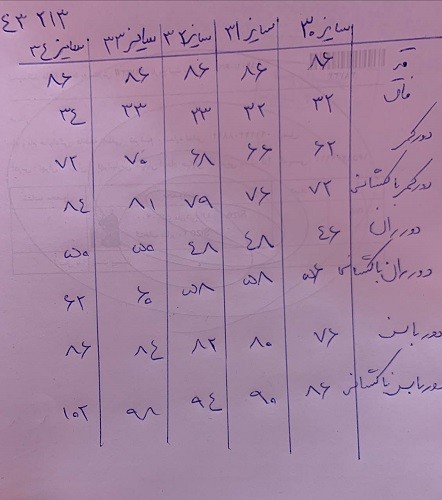 ۴۳ ۲۱۳
سایز ۳۰ سایز ۳۱ سایز ۳۲ سایز ۳۳ سایز ۳۴
قد ۸۶ ۸۶ ۸۶ ۸۶ ۸۶
فاق ۳۲ ۳۲ ۳۳ ۳۳ ۳۴
دور کمر ۶۲ ۶۶ ۶۸ ۷۰ ۷۲
دور کمر با کشسانی ۷۲ ۷۶ ۷۹ ۸۱ ۸۴
دور ران ۴۶ ۴۸ ۴۸ ۵۰ ۵۰
دور ران با کشسانی ۵۶ ۵۸ ۵۸ ۶۰ ۶۲
دور باسن ۷۶ ۸۰ ۸۲ ۸۴ ۸۶
دور باسن با کشسانی ۸۶ ۹۰ ۹۴ ۹۸ ۱۰۲